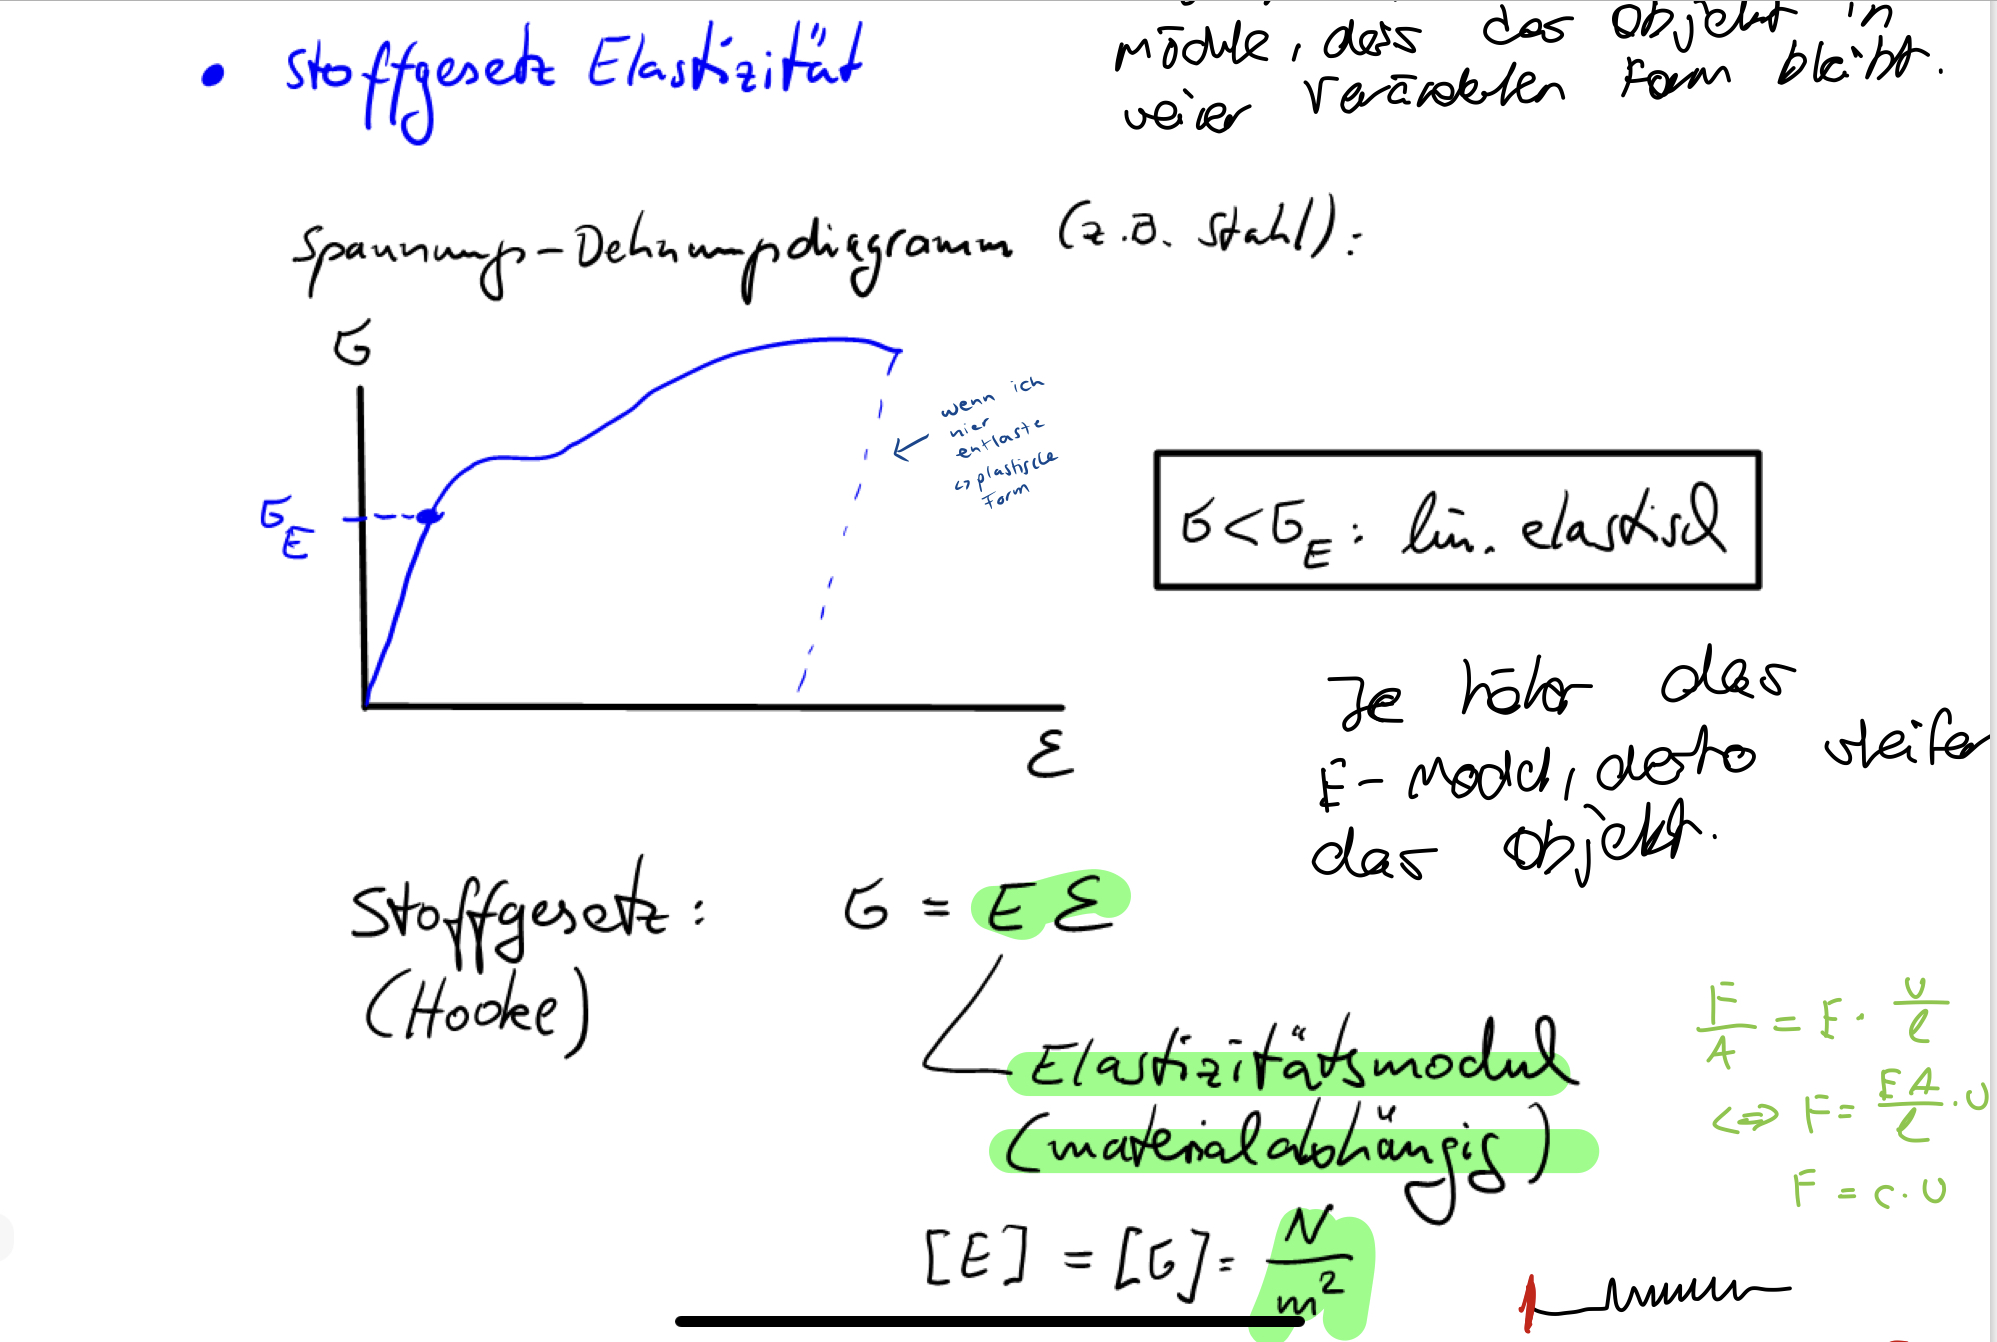 • Stoffgesetz Elastizität
möchte, dass das Objekt in
Form bleibt.
Spannungs-Dehnungsdiagramm (z.B. Stahl):
σ
wenn ich
hier
entlaste
↪ plastische
Form
σ_E
σ < σ_E : lin. elastisch
ε
Je höher das
E-Modul, desto steifer
das Objekt.
Stoffgesetz: σ = E ε
(Hooke)
Elastizitätsmodul
(materialabhängig)
[E] = [σ] = N/m²
F/A = E · u/l
<=> F = EA/l · u
F = c · u